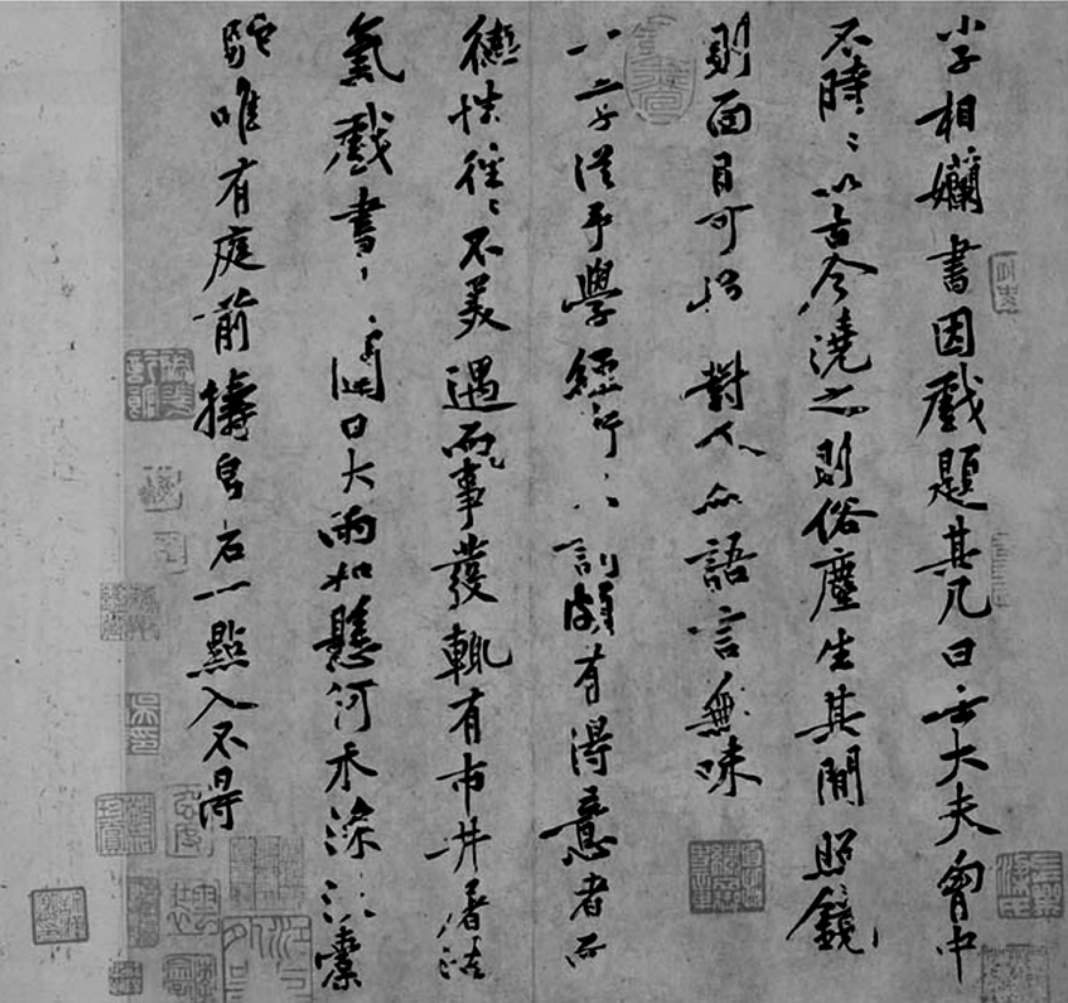 小子相孏書因戲題其几曰士大夫胷中
不時〻以古今澆之則俗塵生其間照鏡
則面目可憎對人亦語言無味
一二子從予學經訓頗有得意者而
德性往〻不美遇事發輒有市井屠沽
氣戲書日大雨如懸河禾
駝唯有庭前擣帛石一點入不得